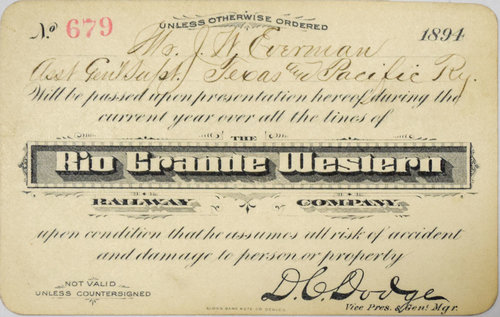 UNLESS OTHERWISE ORDERED
No. 679
1894
Mr. J. W. Everman
Asst Gen'l Supt. Texas and Pacific Ry.
Will be passed upon presentation hereof, during the
current year over all the lines of
THE
Rio Grande Western
RAILWAY COMPANY
upon condition that he assumes all risk of accident
and damage to person or property
NOT VALID
UNLESS COUNTERSIGNED
D. C. Dodge
Vice Pres. & Genl Mgr.